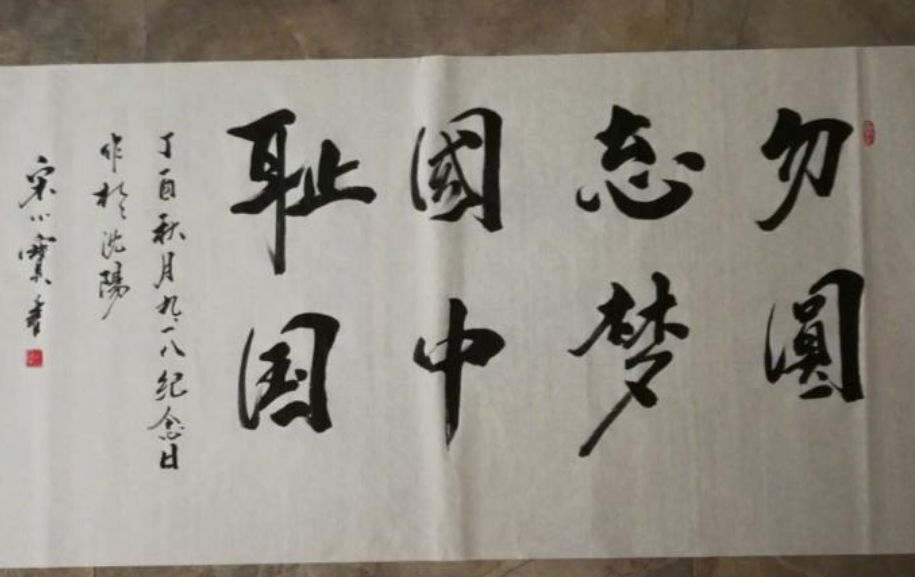 勿忘國耻
圓梦中国
丁酉秋月九.一八纪念日
作於沈陽
宋小寶書